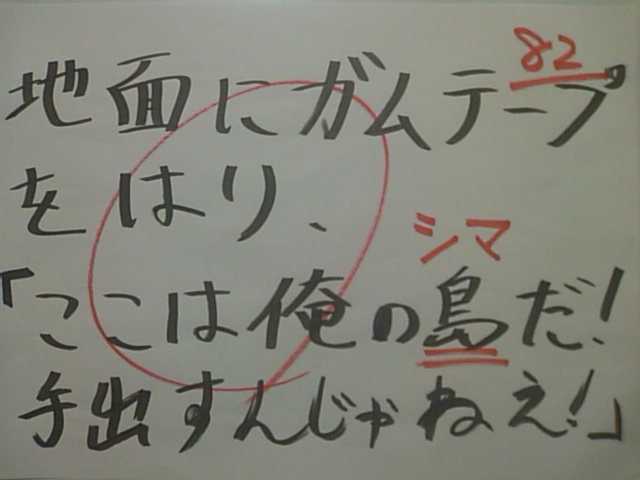 82
地面にガムテープ
をはり、
シマ
「ここは俺の島だ!
手出すんじゃねえ!」